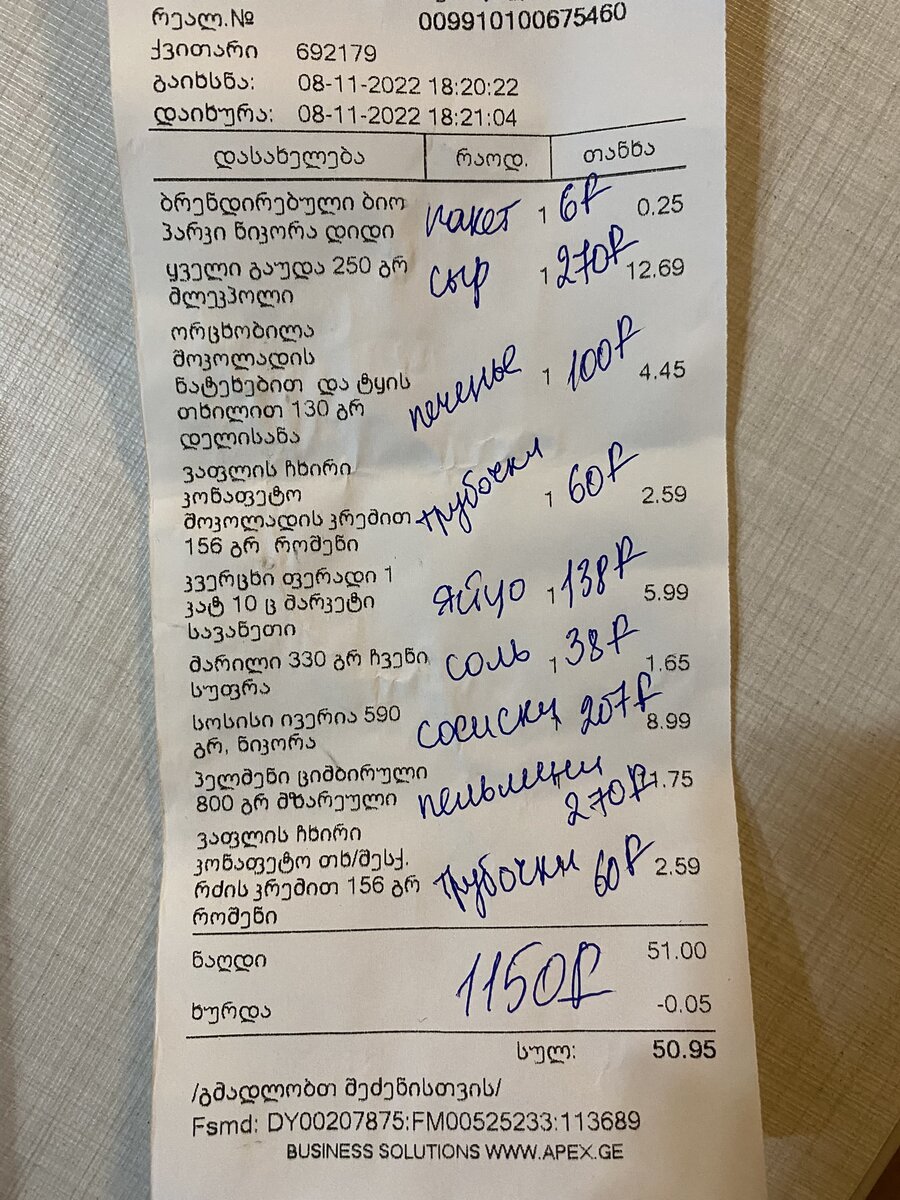 რეალ.№ 009910100675460
ქვითარი 692179
გაიხსნა: 08-11-2022 18:20:22
დაიხურა: 08-11-2022 18:21:04
დასახელება რაოდ. თანხა
ბრენდირებული ბიო
პარკი ნიკორა დიდი пакет 1 6₽ 0.25
ყველი გაუდა 250 გრ
მლეკპოლი сыр 1 270₽ 12.69
ორცხობილა
შოკოლადის
ნატეხებით და ტყის
თხილით 130 გრ
დელისანა печенье 1 100₽ 4.45
ვაფლის ჩხირი
კონაფეტო
შოკოლადის კრემით
156 გრ როშენი трубочки 1 60₽ 2.59
კვერცხი ფერადი 1
კატ 10 ც მარკეტი
სავანეთი яйцо 1 138₽ 5.99
მარილი 330 გრ ჩვენი
სუფრა соль 1 38₽ 1.65
სოსისი ივერია 590
გრ, ნიკორა сосиски 207₽ 8.99
პელმენი ციმბირული
800 გრ მზარეული пельмени 270₽ 11.75
ვაფლის ჩხირი
კონაფეტო თხ/მესქ.
რძის კრემით 156 გრ
როშენი трубочки 60₽ 2.59
ნაღდი 51.00
1150₽
ხურდა -0.05
სულ: 50.95
/გმადლობთ შეძენისთვის/
Fsmd: DY00207875:FM00525233:113689
BUSINESS SOLUTIONS WWW.APEX.GE